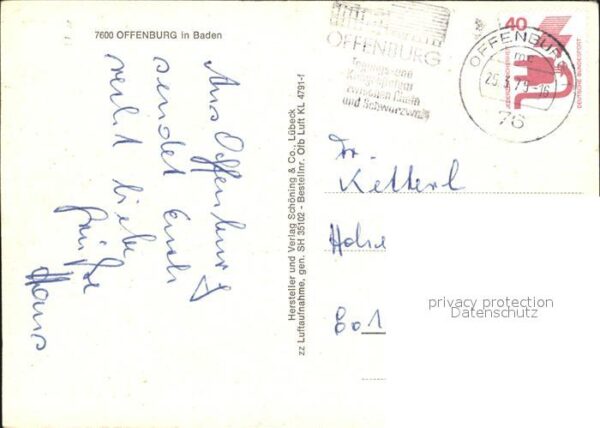 7600 OFFENBURG in Baden
Aus Offenburg
sendet Euch
recht liebe
Grüße
Hans
Hersteller und Verlag Schöning & Co., Lübeck
zz Luftaufnahme, gen. SH 35102 - Bestellnr. Ofb Luft KL 4791-f
OFFENBURG
Tagungs- und
zwischen Rhein
und Schwarzwald
40
DEUTSCHE BUNDESPOST
OFFENBURG
25.3.75-16
76
Ketterl
privacy protection
Datenschutz